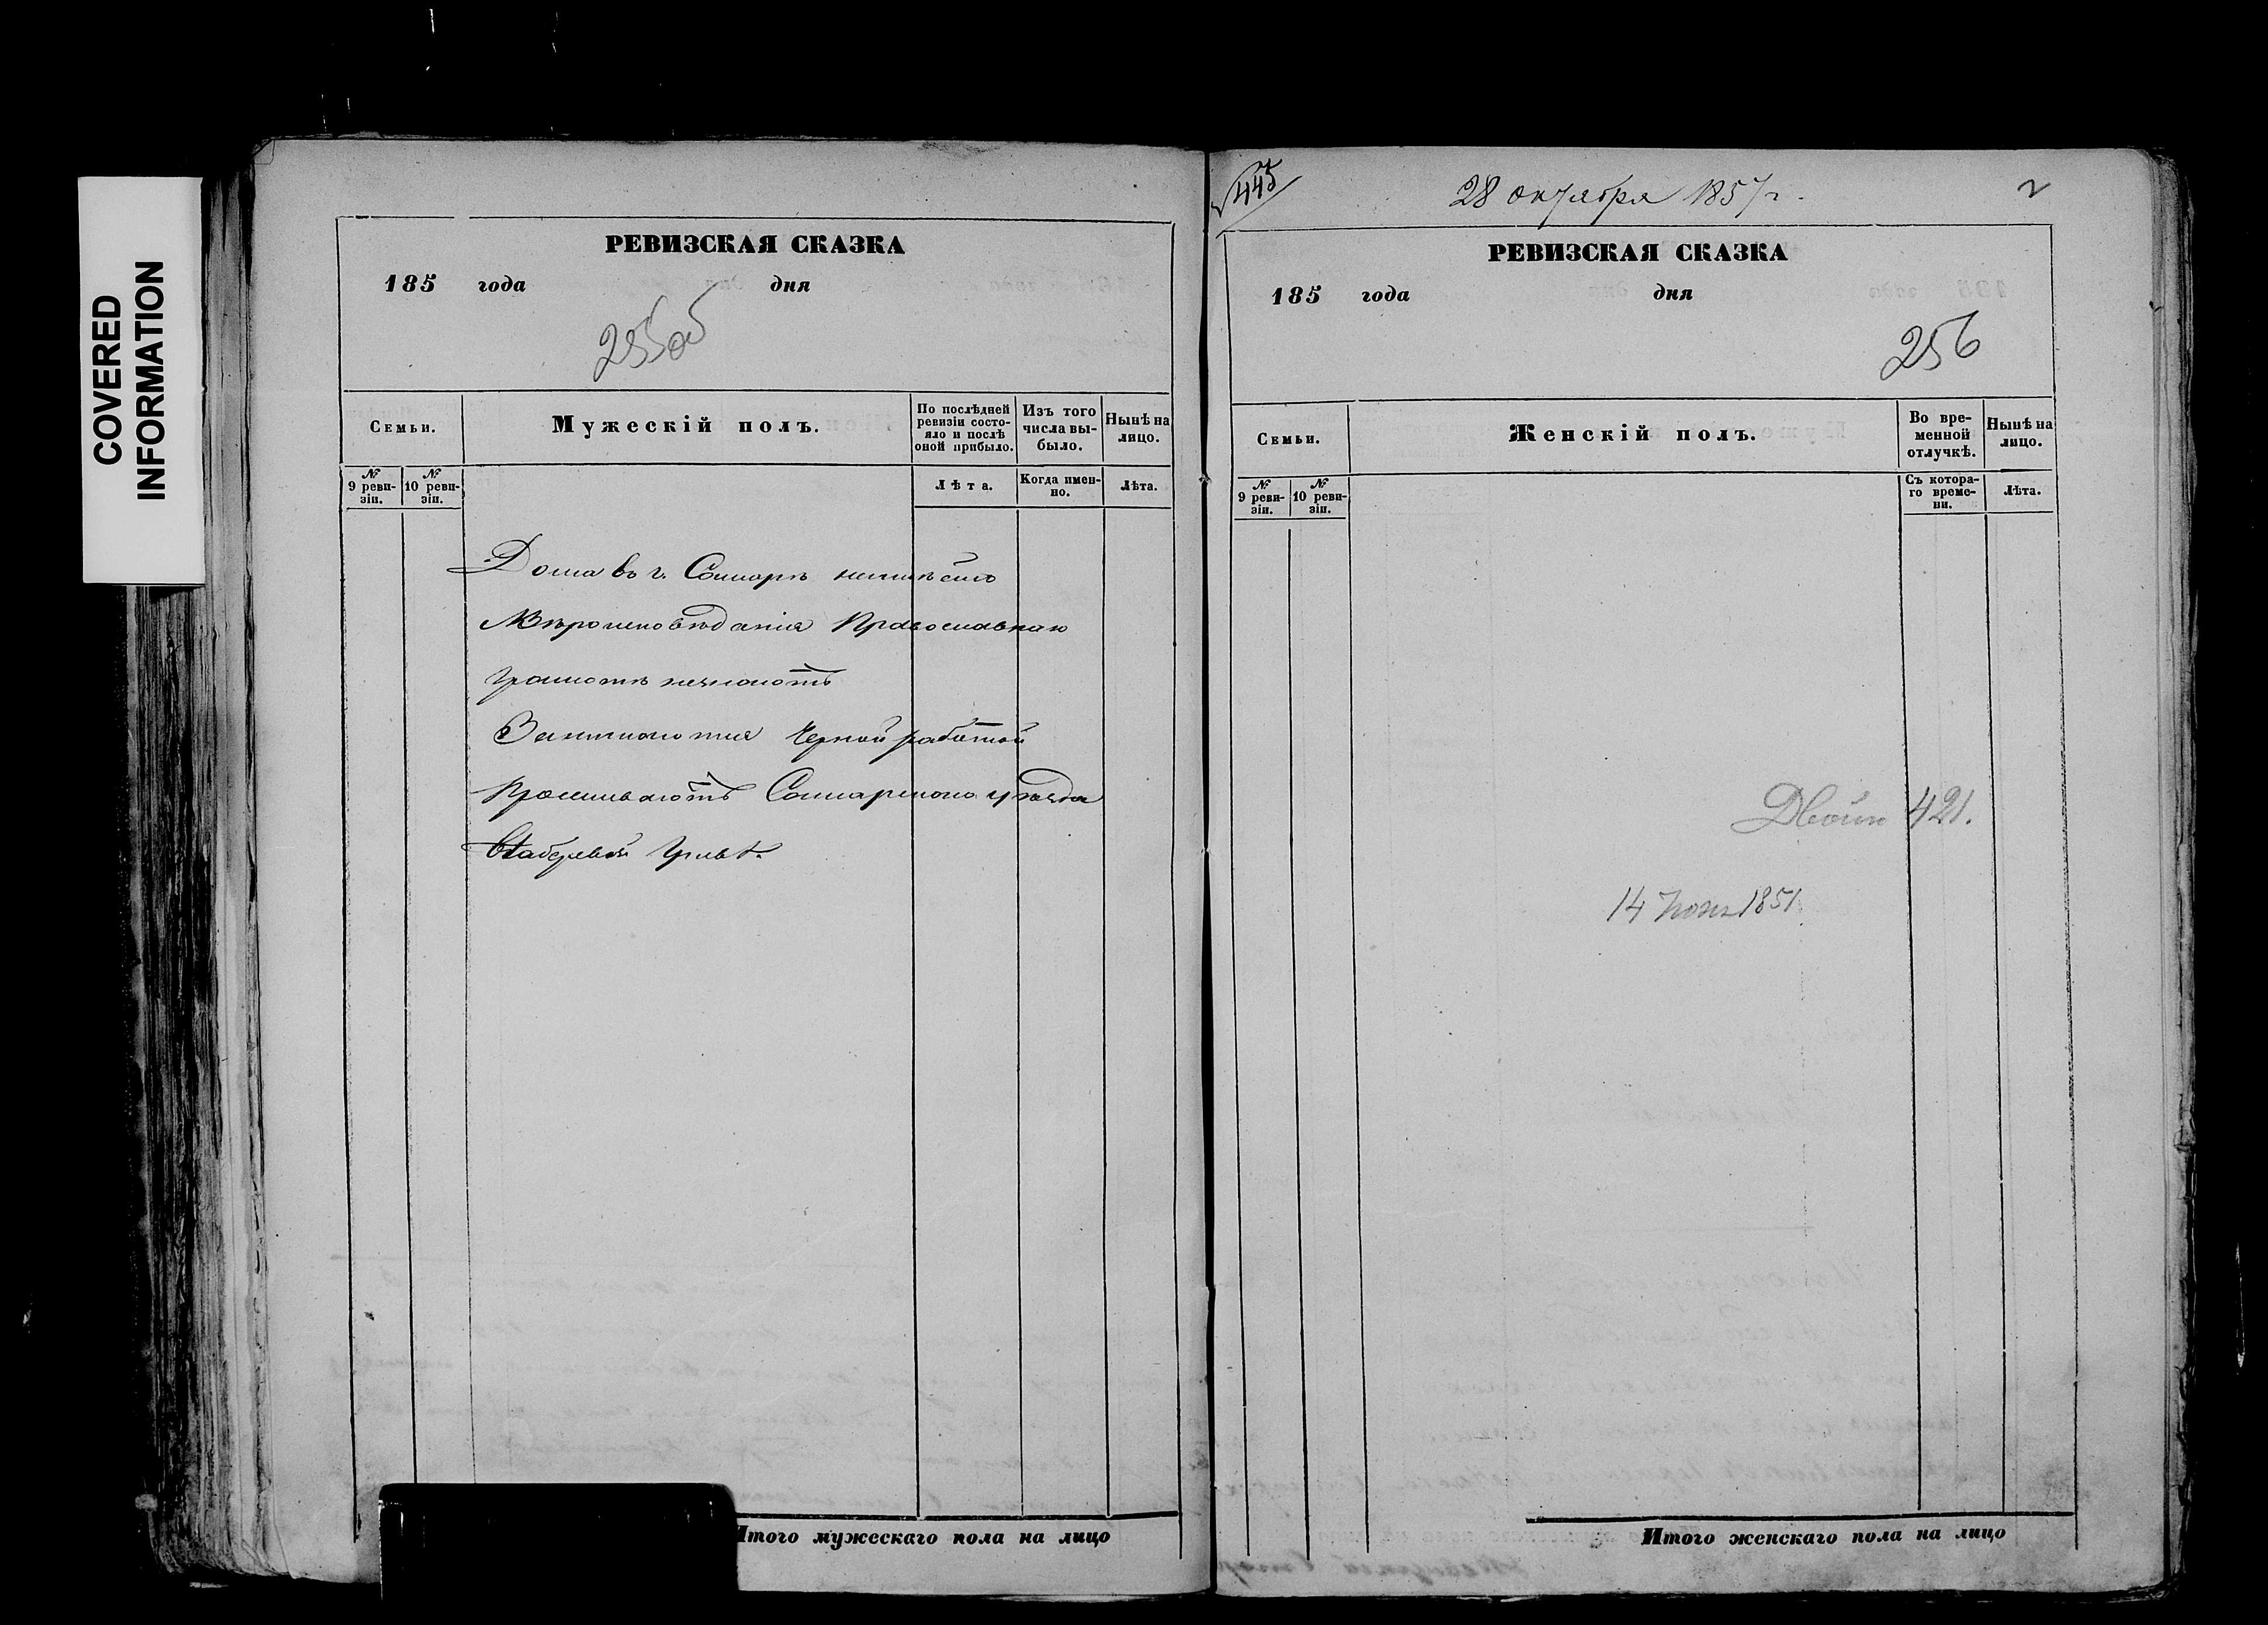 COVERED
INFORMATION
РЕВИЗСКАЯ СКАЗКА
185 года дня
255об
Семьи.
Мужескій полъ.
По послѣдней
ревизіи состо-
яло и послѣ
оной прибыло.
Изъ того
числа вы-
было.
Нынѣ на
лицо.
№
9 реви-
зіи.
№
10 реви-
зіи.
Лѣта.
Когда имен-
но.
Лѣта.
Дома въ г. Самарѣ неимѣетъ
Вѣроисповѣданія Православнаго
Грамотѣ незнаютъ
Занимаются Черной работой
Проживаютъ Самарскаго уѣзда
Итого мужескаго пола на лицо
445
28 октября 1857 г.
2
РЕВИЗСКАЯ СКАЗКА
185 года дня
256
Семьи.
Женскій полъ.
Во вре-
менной
отлучкѣ.
Нынѣ на
лицо.
№
9 реви-
зіи.
№
10 реви-
зіи.
Съ котора-
го време-
ни.
Лѣта.
421.
14 1851
Итого женскаго пола на лицо